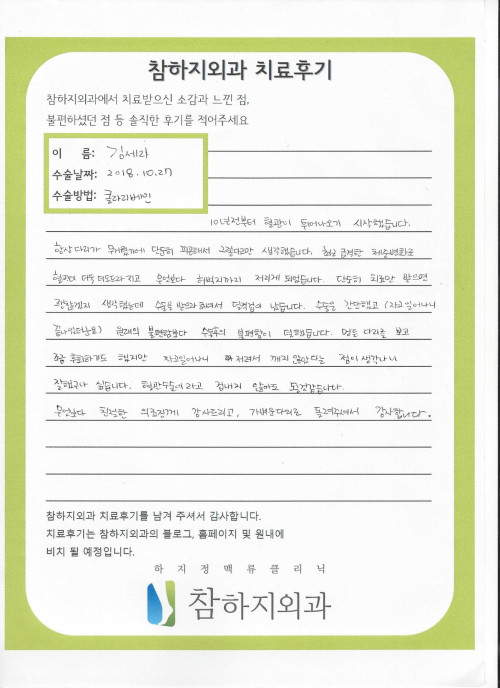 참하지외과 치료후기
참하지외과에서 치료받으신 소감과 느낀 점,
불편하셨던 점 등 솔직한 후기를 적어주세요
이 름: 김세라
수술날짜: 2018.10.27
수술방법: 클라리베인
10년전부터 혈관이 튀어나오기 시작했습니다.
항상 다리가 무거웠기에 단순히 피곤해서 그렇다고만 생각했습니다. 최근 급격한 체중변화로
혈관이 더욱 더 도드라지고 무엇보다 허벅지까지 저리게 되었습니다. 단순히 치료만 받으면
괜찮겠지 생각했는데 수술을 받으라 하셔서 덜컥겁이 났습니다. 수술은 간단했고 (자고일어나니
끝나있더군요) 현재의 불편함보다 수술후의 불편함이 덜했습니다. 멍든 다리를 보고
조금 후회하기도 했지만 자고일어나니 저려서 깨지 않았다는 점이 생각나니
잘했구나 싶습니다. 혈관수술이라고 겁내지 않아도 될것같습니다.
무엇보다 친절한 의료진께 감사드리고, 가벼운다리로 돌려주셔서 감사합니다.
참하지외과 치료후기를 남겨 주셔서 감사합니다.
치료후기는 참하지외과의 블로그, 홈페이지 및 원내에
비치 될 예정입니다.
하지정맥류클리닉
참하지외과